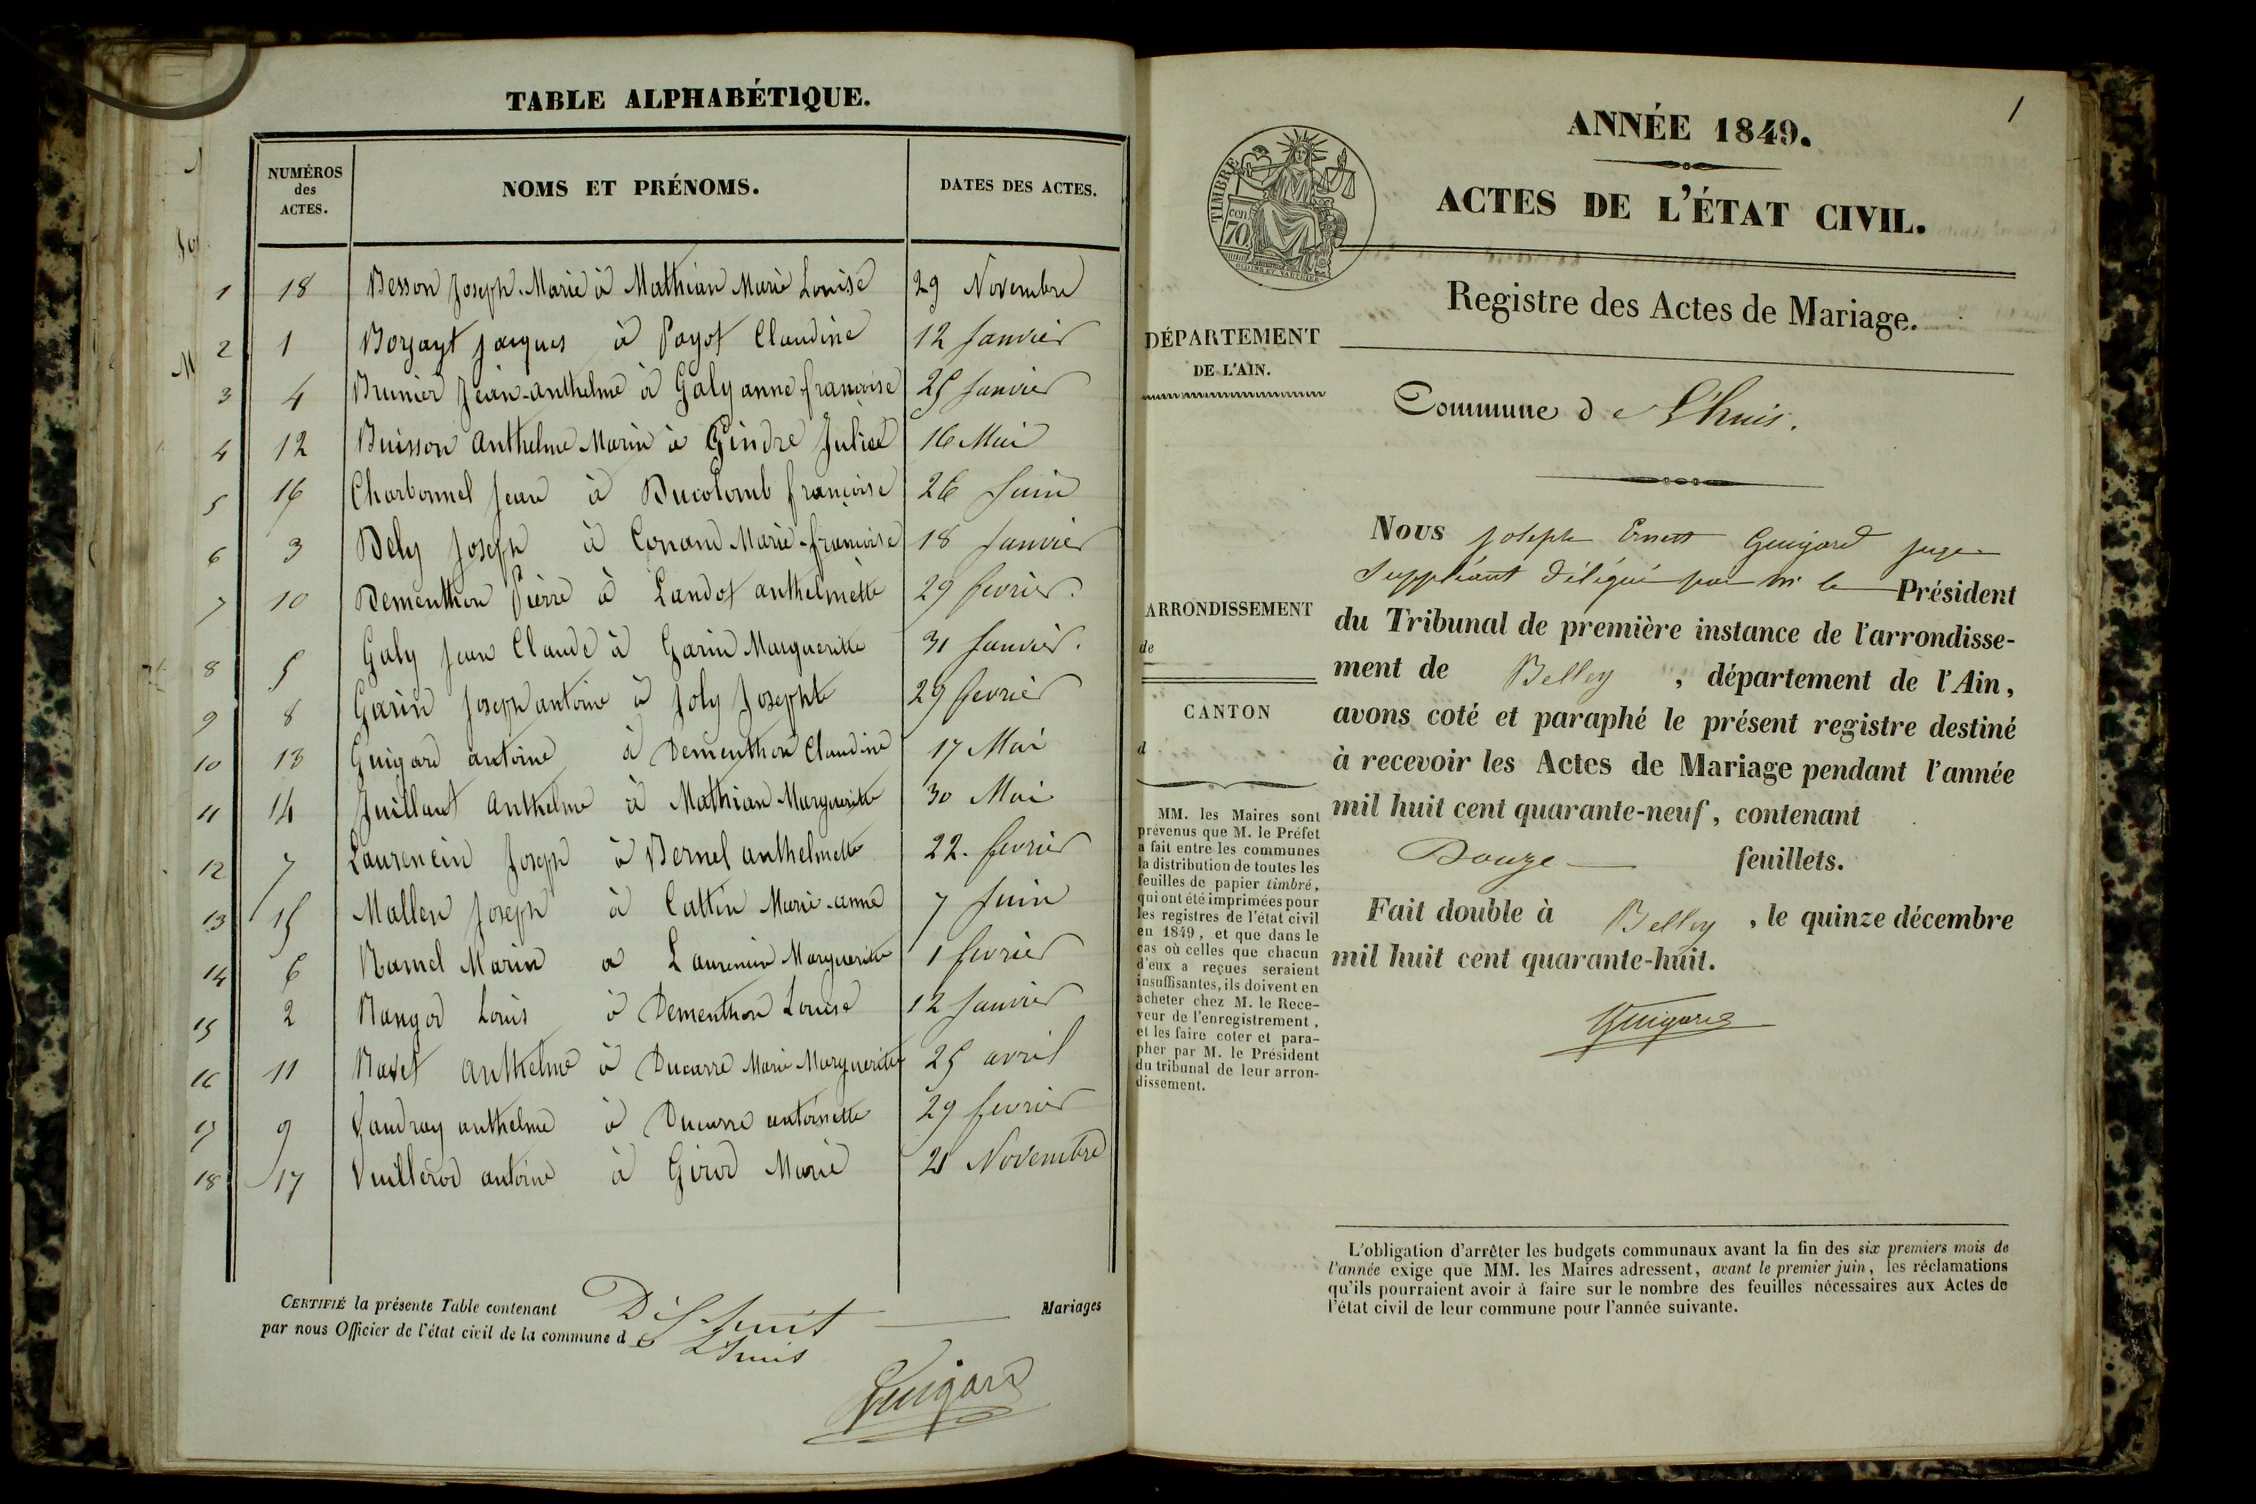 TABLE ALPHABÉTIQUE.
NUMÉROS des ACTES. NOMS ET PRÉNOMS. DATES DES ACTES.
1 18 Besson Joseph-Marie à Mathian Marie Louise 29 Novembre
2 1 Jacques à Payot Claudine 12 Janvier
3 4 Brunier Jean-anthelme à Galy anne françoise 25 Janvier
4 12 Buisson anthelme Marin à Gindre Julie 16 Mai
5 16 Charbonnel Jean à Ducolomb françoise 26 Juin
6 3 Dely Joseph à Conand Marie-françoise 18 Janvier
7 10 Dementhon Pierre à Landot anthelmette 29 fevrier.
8 5 Galy Jean Claude à Garin Margueritte 31 Janvier.
9 8 Garin Joseph antoine à Joly Josephte 29 fevrier
10 13 Guigard antoine à Dementhon Claudine 17 Mai
11 14 Juilland Anthelme à Mathian Margueritte 30 Mai
12 7 Laurencin Joseph à Bernel anthelmette 22. fevrier
13 15 Mallen Joseph à Cattin Marie-anne 7 Juin
14 6 Ramel Marin a Laurencin Margueritte 1 fevrier
15 2 Rangod Louis à Dementhon Louise 12 Janvier
16 11 Ravet anthelme à Ducarre Marie Margueritte 25 avril
17 9 Vaudray anthelme à Ducarre antoinette 29 fevrier
18 17 Vuillerod antoine à Girod Marie 21 Novembre
CERTIFIÉ la présente Table contenant Dix-huit Mariages
par nous Officier de l'état civil de la commune de Lhuis
Guigard
1
ANNÉE 1849.
ACTES DE L'ÉTAT CIVIL.
TIMBRE
cen
70
Registre des Actes de Mariage.
DÉPARTEMENT
DE L'AIN.
Commune de Lhuis.
ARRONDISSEMENT
de
CANTON
d
MM. les Maires sont
prévenus que M. le Préfet
a fait entre les communes
la distribution de toutes les
feuilles de papier timbré,
qui ont été imprimées pour
les registres de l'état civil
en 1849, et que dans le
cas où celles que chacun
d'eux a reçues seraient
insuffisantes, ils doivent en
acheter chez M. le Rece-
veur de l'enregistrement,
et les faire coter et para-
pher par M. le Président
du tribunal de leur arron-
dissement.
Nous Joseph Ernest Guigard juge
Suppléant délégué par M. le Président
du Tribunal de première instance de l'arrondisse-
ment de Belley, département de l'Ain,
avons coté et paraphé le présent registre destiné
à recevoir les Actes de Mariage pendant l'année
mil huit cent quarante-neuf, contenant
Douze feuillets.
Fait double à Belley, le quinze décembre
mil huit cent quarante-huit.
Guigard
L'obligation d'arrêter les budgets communaux avant la fin des six premiers mois de
l'année exige que MM. les Maires adressent, avant le premier juin, les réclamations
qu'ils pourraient avoir à faire sur le nombre des feuilles nécessaires aux Actes de
l'état civil de leur commune pour l'année suivante.